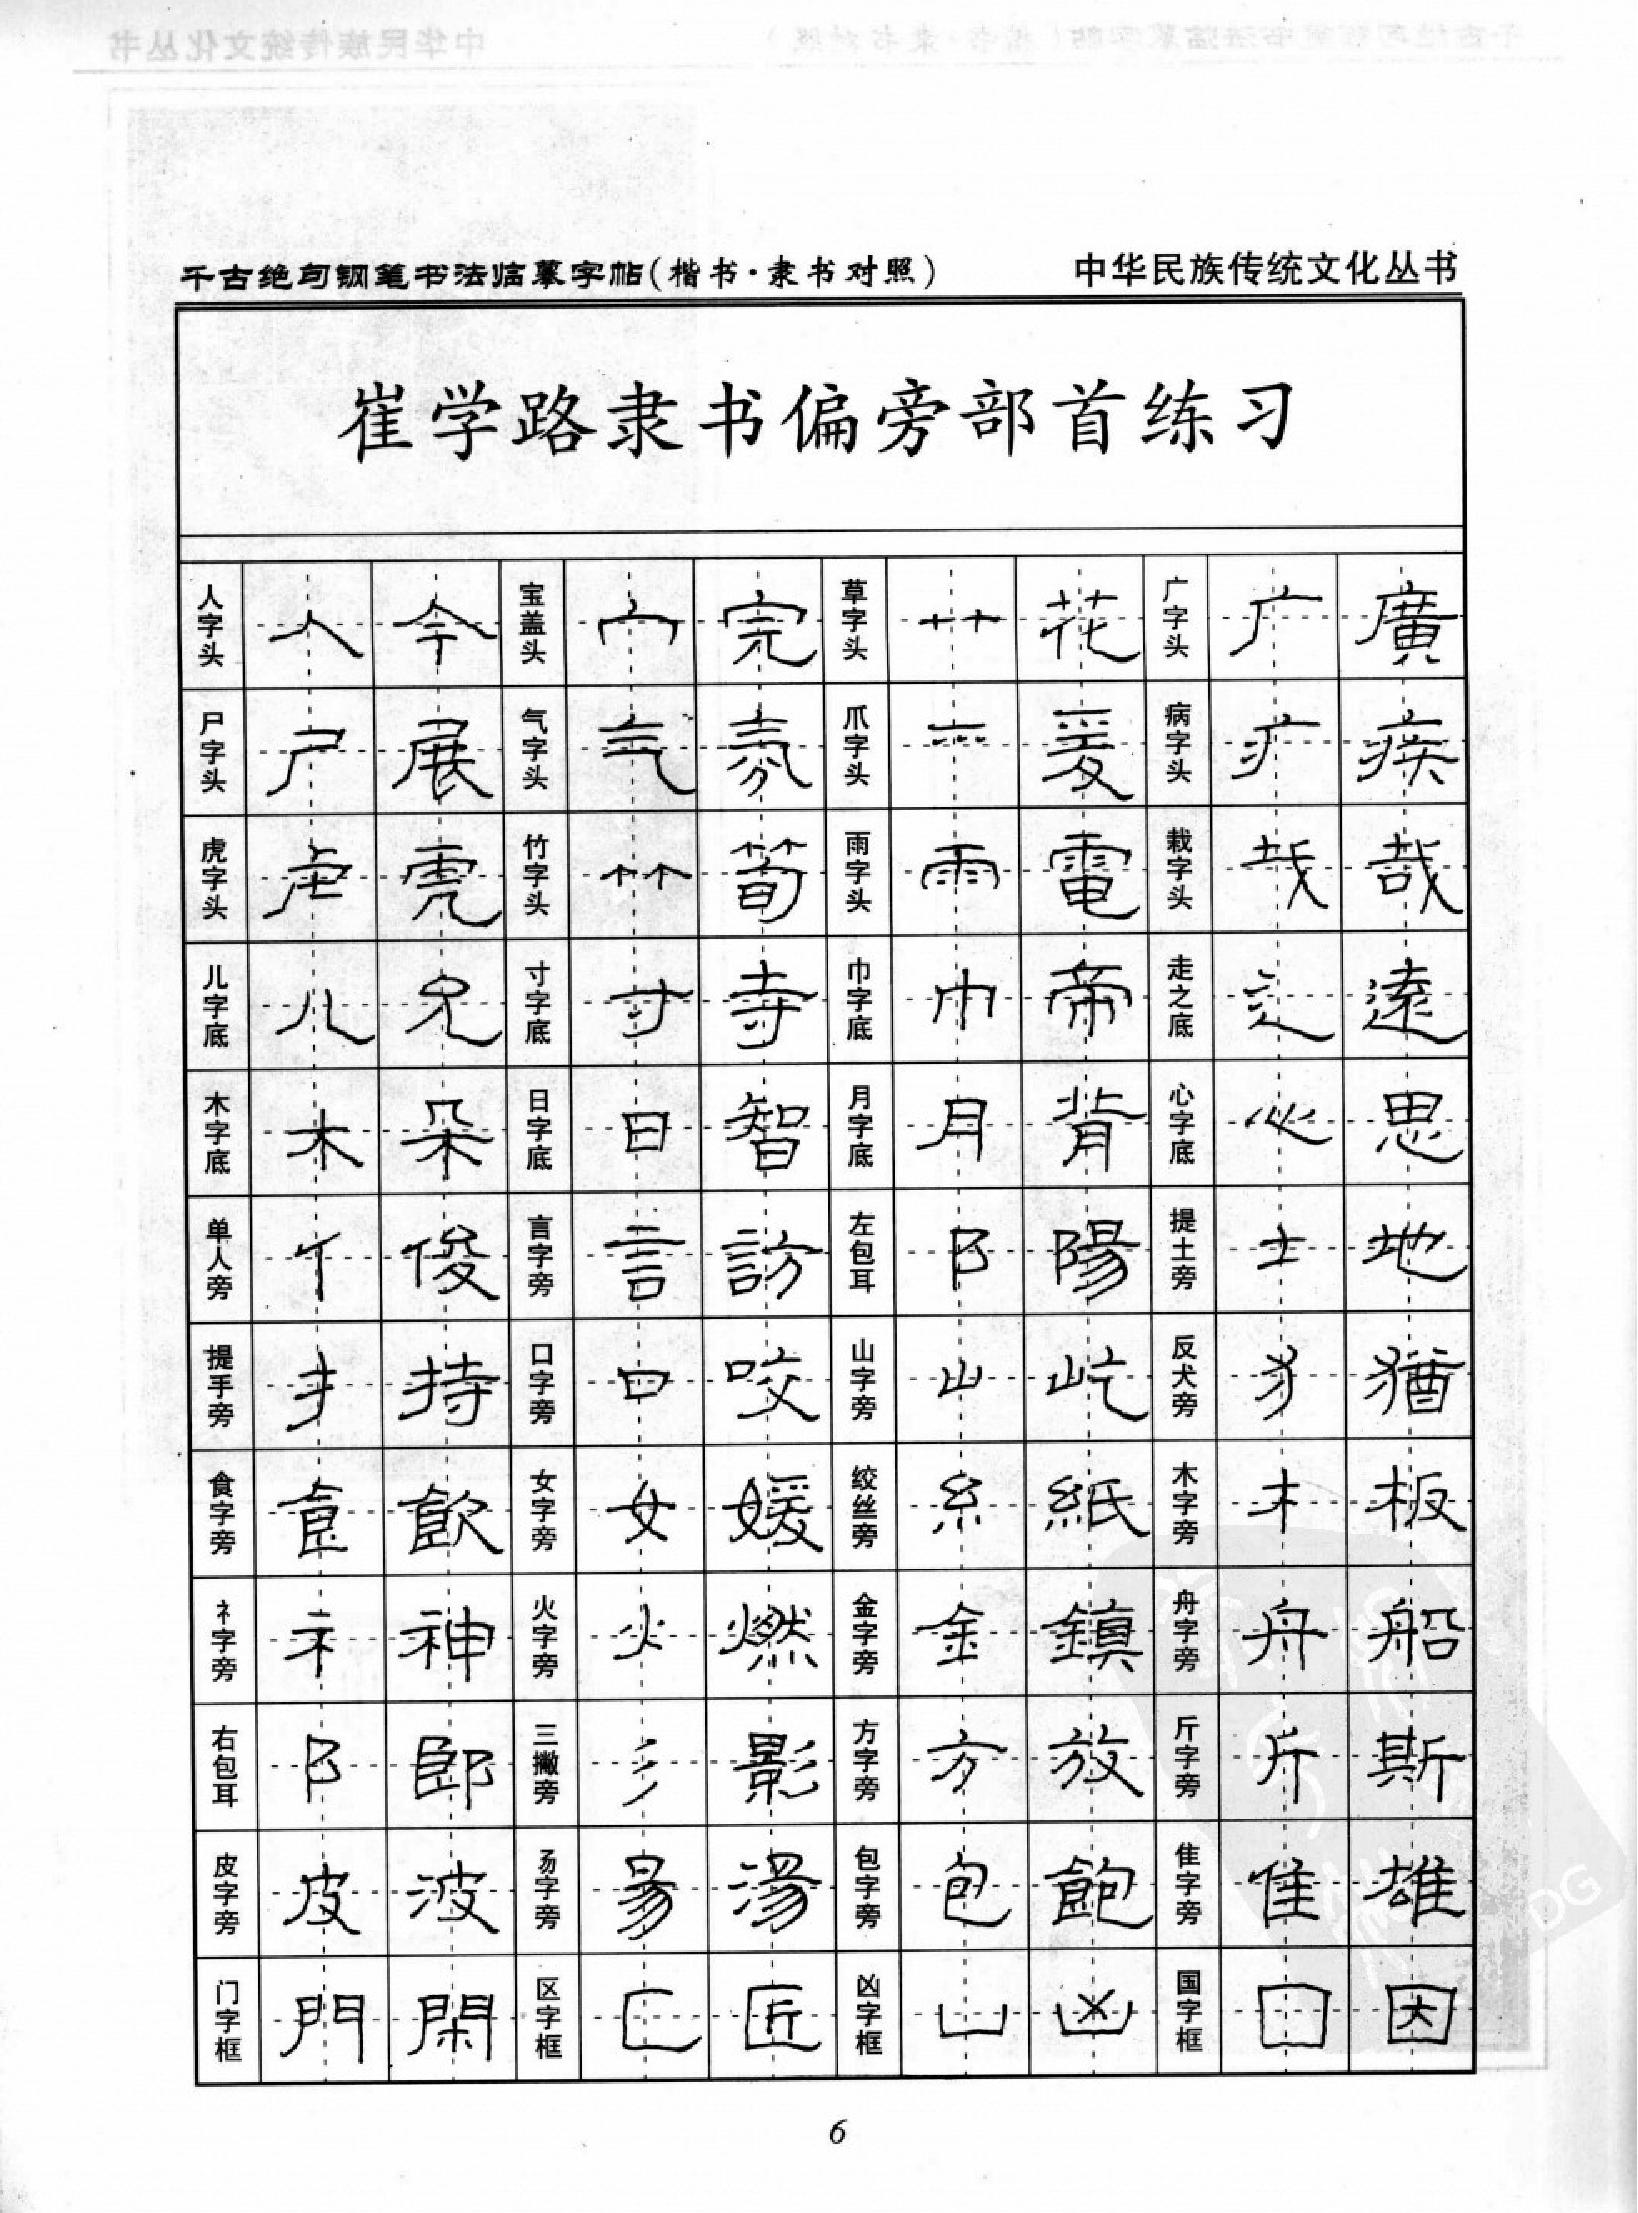 千古绝句钢笔书法临摹字帖(楷书·隶书对照) 中华民族传统文化丛书
崔学路隶书偏旁部首练习
人字头 人 今 宝盖头 宀 完 草字头 艹 花 广字头 广 廣
尸字头 尸 展 气字头 气 氛 爪字头 爫 爰 病字头 疒 疾
虎字头 虍 虎 竹字头 ⺮ 筍 雨字头 雨 電 栽字头 𢦏 哉
儿字底 儿 兄 寸字底 寸 寺 巾字底 巾 帝 走之底 辶 遠
木字底 木 朵 日字底 日 智 月字底 月 背 心字底 心 思
单人旁 亻 俊 言字旁 言 訪 左包耳 阝 陽 提土旁 土 地
提手旁 扌 持 口字旁 口 咬 山字旁 山 屹 反犬旁 犭 猶
食字旁 食 飲 女字旁 女 媛 绞丝旁 糹 紙 木字旁 木 板
礻字旁 礻 神 火字旁 火 燃 金字旁 金 鎮 舟字旁 舟 船
右包耳 阝 郎 三撇旁 彡 影 方字旁 方 放 斤字旁 斤 斯
皮字旁 皮 波 昜字旁 昜 湯 包字旁 包 飽 隹字旁 隹 雄
门字框 門 閑 区字框 匚 匠 凶字框 凵 凶 国字框 囗 因
6